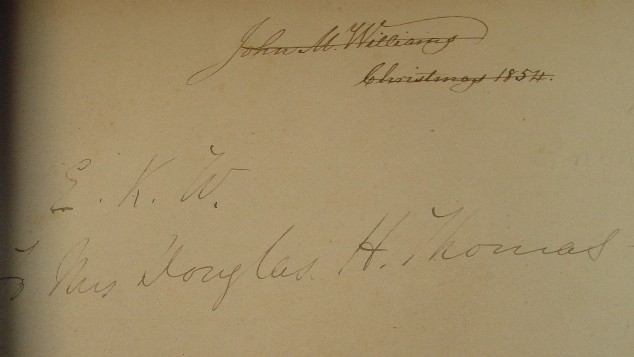 John M. Williams
Christmas 1854.
E. K. W.
To Mrs Douglas H. Thomas